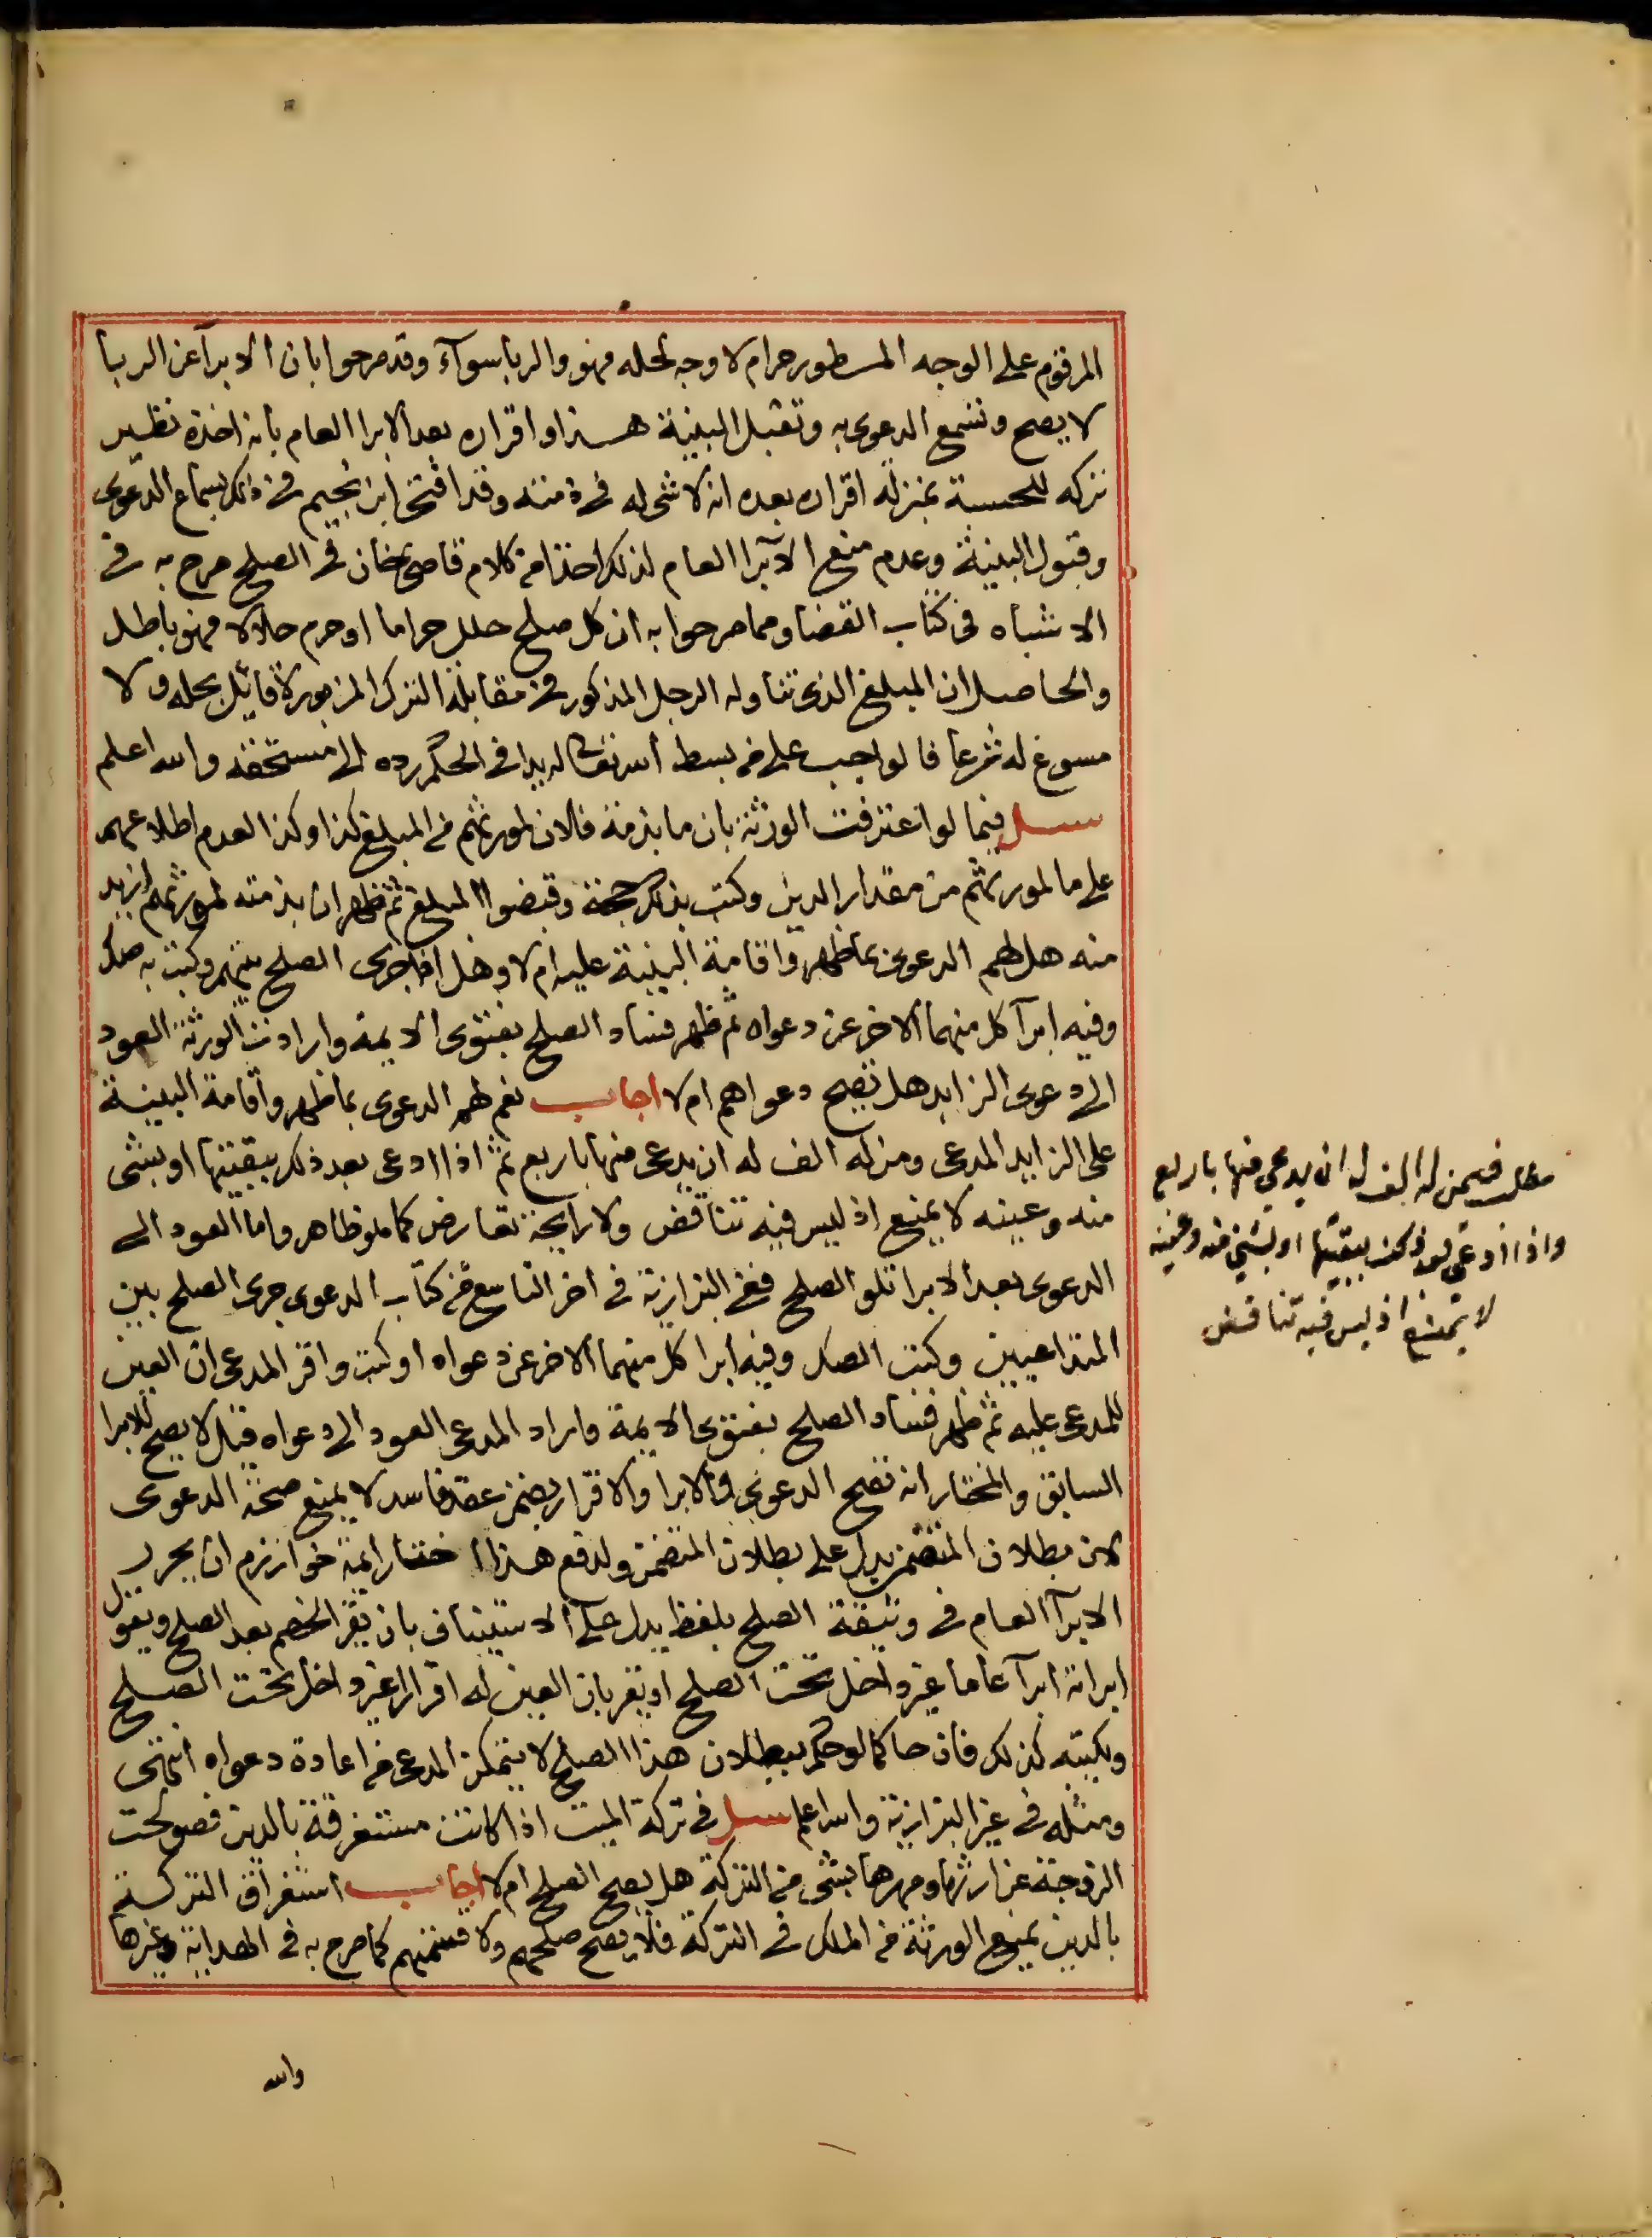 المرقوم على الوجه المسطور حرام لا وجه لحله فهو والربا سوآء وقد صرحوا بان الابرآ عن الربا
لا يصح وتسمع الدعوى به وتقبل البينة هذا واقراره بعد الابرا العام بانه اخذه نظير
تركه للحسبة بمنزلة اقراره بعده انه لا شى له فى ذمته وقد افتى ابن نجيم فى ذلك بسماع الدعوى
وقبول البينة وعدم منع الابرا العام لذلك اخذا من كلام قاضى خان فى الصلح صرح به فى
الاشباه فى كتاب القضا ومما صرحوا به ان كل صلح حلل حراما او حرم حلالا فهو باطل
والحاصل ان المبلغ الذى تناوله الرجل المذكور فى مقابلة الترك المزبور لا قائل بحله ولا
مسوغ له شرعا فالواجب على من بسط الله تعالى له يدا فى الحكم رده الى مستحقه والله اعلم
سل فيما لو اعترفت الورثة بان ما بذمة فلان لمورثهم من المبلغ كذا وكذا لعدم اطلاعهم
على ما لمورثهم من مقدار الدين وكتب بذلك حجة وقبضوا المبلغ ثم ظهر ان بذمته لمورثهم ازيد
منه هل لهم الدعوى بما ظهر واقامة البينة عليه ام لا وهل اذا جرى الصلح بينهم وكتب به صك
وفيه ابرآ كل منهما الاخر عن دعواه ثم ظهر فساد الصلح بفتوى الايمة وارادت الورثة العود
الى دعوى الزايد هل تصح دعواهم ام لا اجاب نعم لهم الدعوى بما ظهر واقامة البينة
على الزايد المدعى ومن له الف له ان يدعى منها باربع ثم اذا ادعى بعد ذلك ببقيتها او بشى
منه وعينه لا يمنع اذ ليس فيه تناقض ولا رايحة تعارض كما هو ظاهر واما العود الى
الدعوى بعد الابرا تلو الصلح ففى البزازية فى اخر التاسع من كتاب الدعوى جرى الصلح بين
المتداعيين وكتب الصك وفيه ابرا كل منهما الاخر عن دعواه او كتب واقر المدعى ان العين
للمدعى عليه ثم ظهر فساد الصلح بفتوى الايمة واراد المدعى العود الى دعواه قيل لا يصح للابرا
السابق والمختار انه تصح الدعوى والابرا والاقرار بضمن عقد فاسد لا يمنع صحة الدعوى
لان بطلان المتضمن يدل على بطلان المتضمن ولدفع هذا اختار ايمة خوارزم ان يحرر
الابرآ العام فى وثيقة الصلح بلفظ يدل على الاستيناف بان يقر الخصم بعد الصلح ويقول
ابراته ابرآ عاما غير داخل تحت الصلح او يقر بان العين له اقرارا غير داخل تحت الصلح
ويكتبه كذلك فان حاكما لو حكم ببطلان هذا الصلح لا يتمكن المدعى من اعادة دعواه انتهى
ومثله فى غير البزازية والله اعلم سل فى تركة الميت اذا كانت مستغرقة بالدين فصولحت
الزوجة عن ارثها ومهرها بشى من التركة هل يصح الصلح ام لا اجاب استغراق التركة
بالدين يمنع الورثة من الملك فى التركة فلا يصح صلحهم ولا قسمتهم كما صرح به فى الهداية وغيرها
والله
مطلب فيمن له الف له ان يدعى منها باربع
واذا ادعى بعد ذلك ببقيتها او بشى منه وعينه
لا يمنع اذ ليس فيه تناقض